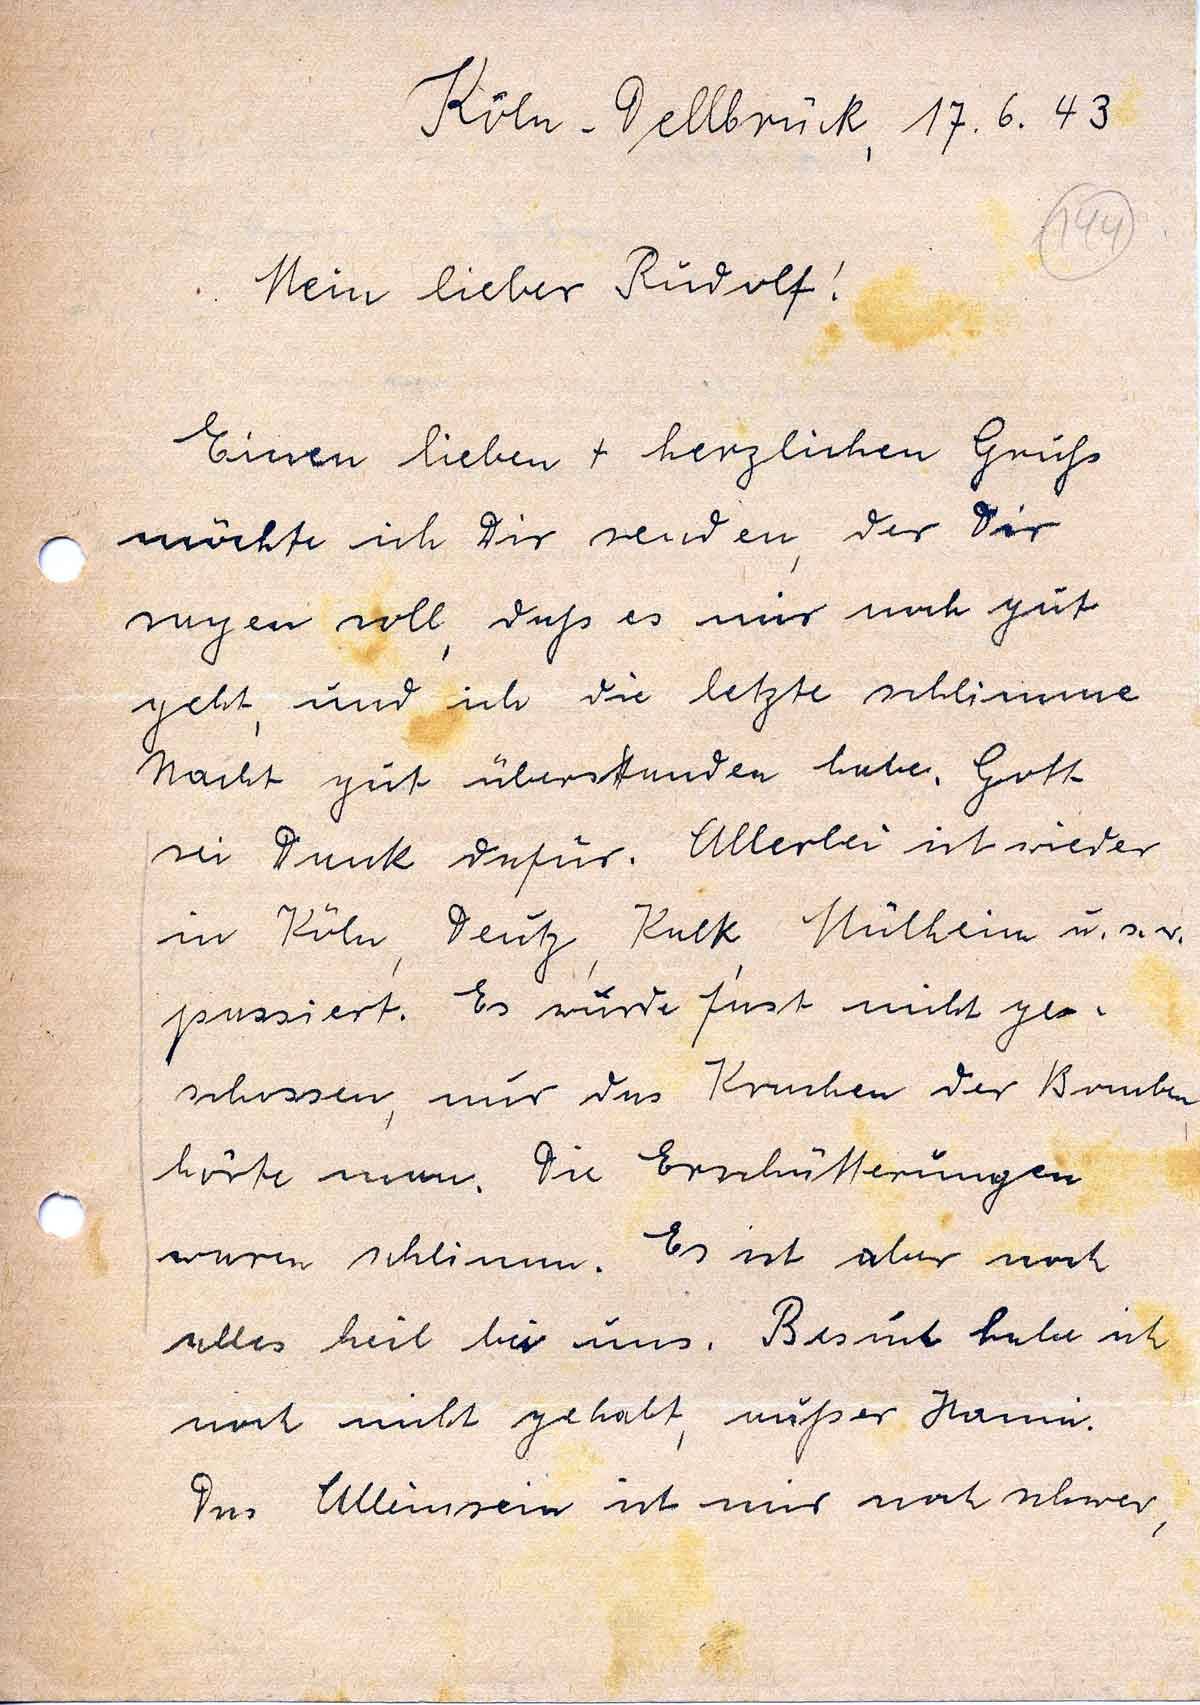 Köln-Dellbrück, 17.6.43
144
Mein lieber Rudolf!
Einen lieben + herzlichen Gruß
möchte ich Dir senden, der Dir
sagen soll, daß es mir noch gut
geht, und ich die letzte schlimme
Nacht gut überstanden habe. Gott
sei Dank dafür. Allerlei ist wieder
in Köln, Deutz, Kalk, Mülheim u.s.w.
passiert. Es wurde fast nicht ge-
schossen, nur das Krachen der Bomben
hörte man. Die Erschütterungen
waren schlimm. Es ist aber noch
alles heil bei uns. Besuch habe ich
noch nicht gehabt, außer Hanni.
Das Alleinsein ist mir noch schwer,